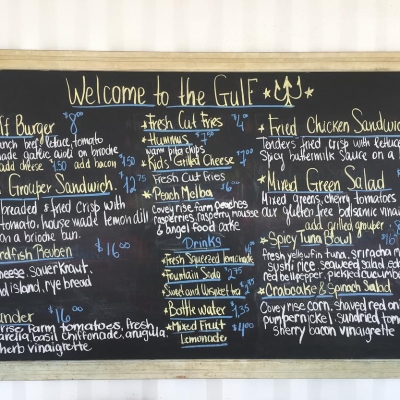 Welcome to the Gulf
Burger $8.00
lunch beef, lettuce, tomato
made garlic aioli on brioche
add cheese $.50 add bacon $1.50
Grouper Sandwich $12.75
breaded & fried crisp with
tomato, house made lemon dill
on a brioche bun.
Reuben $16.00
cheese, sauerkraut,
island, rye bread
$16.00
rise farm tomatoes, fresh
basil chiffonade, arugula,
herb vinaigrette
Fresh Cut Fries $4.00
Hummus $7.50
warm pita chips
Kid's Grilled Cheese $7.00
Fresh Cut Fries
Peach Melba $6.00
Covey rise farm peaches
raspberries, raspberry mousse
& angel food cake
Drinks
Fresh Squeezed lemonade
Fountain Soda $2.75
Sweet and Unsweet tea
Bottle water $1.35
Mixed Fruit $4.00
Lemonade
Fried Chicken Sandwich
Tenders fried crisp with lettuce
Spicy buttermilk sauce on a
Mixed Green Salad
Mixed greens, cherry tomatoes
our gluten free balsamic vinai
add grilled grouper
Spicy Tuna Bowl $16
fresh yellowfin tuna, sriracha
sushi rice, seaweed salad
red bell pepper, pickled cucumber
Crabcake & Spinach Salad
Covey rise corn, shaved red on
pumpernickel, sundried tom
sherry bacon vinaigrette